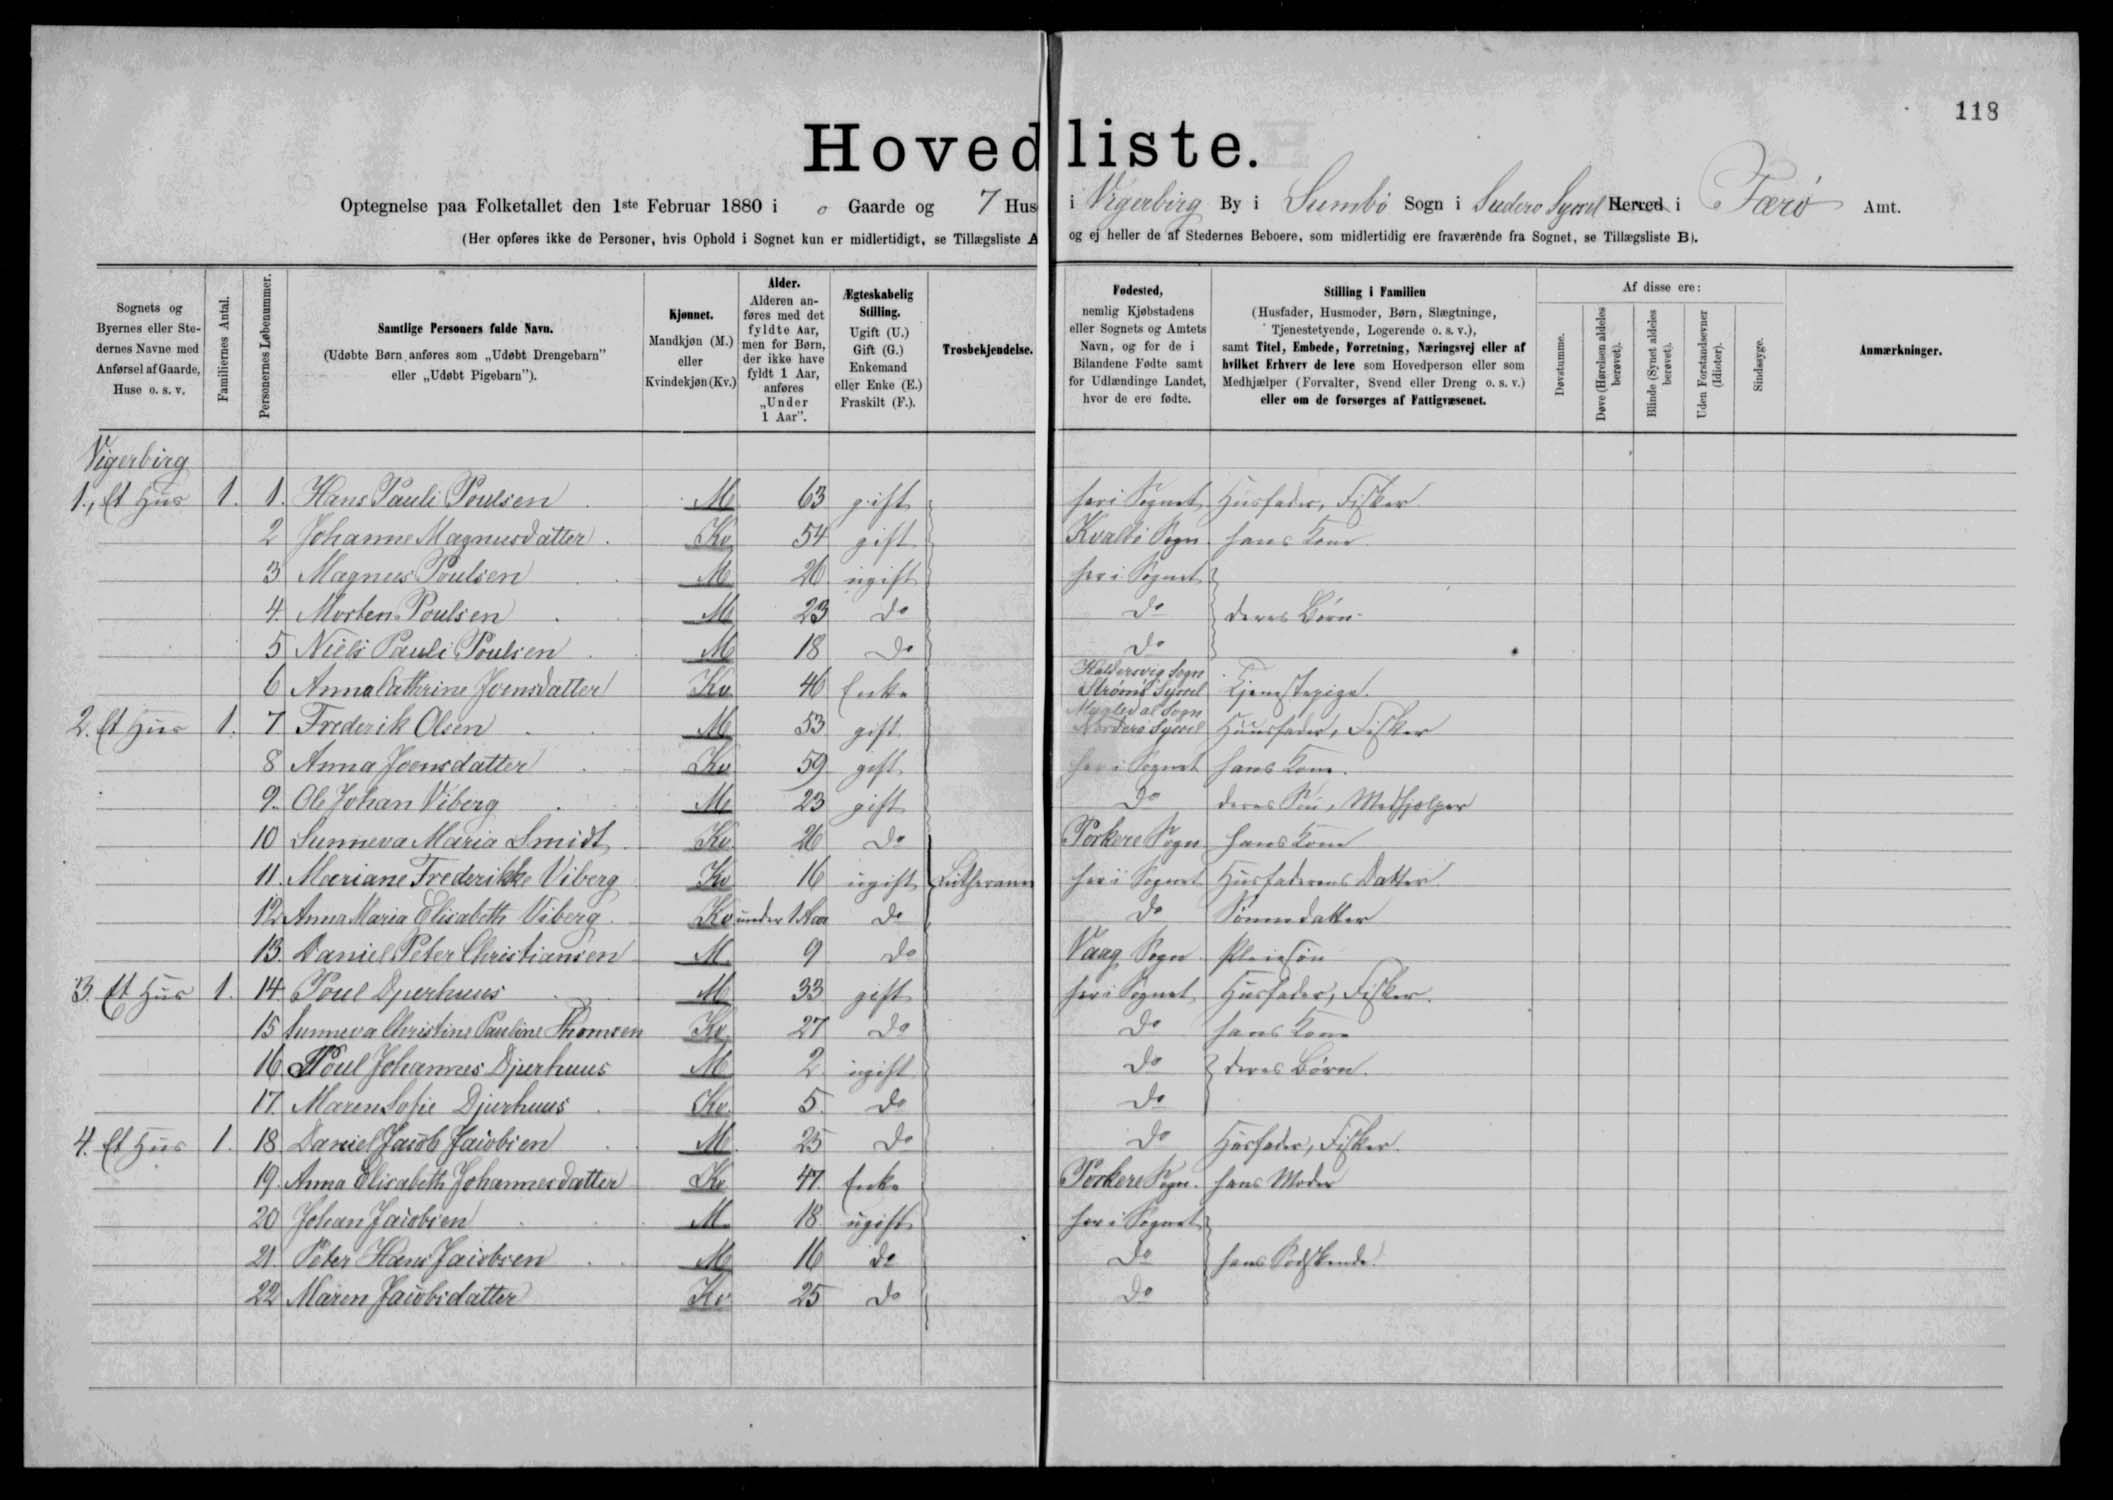 118
Hovedliste.
Optegnelse paa Folketallet den 1ste Februar 1880 i 0 Gaarde og 7 Hus i Vigerbirg By i Sumbö Sogn i Suderö Syssel Herred i Færö Amt.
(Her opføres ikke de Personer, hvis Ophold i Sognet kun er midlertidigt, se Tillægsliste A og ej heller de af Stedernes Beboere, som midlertidig ere fraværende fra Sognet, se Tillægsliste B).
Sognets og Byernes eller Stedernes Navne med Anførsel af Gaarde, Huse o. s. v.
Familiernes Antal.
Personernes Løbenummer.
Samtlige Personers fulde Navn. (Udøbte Børn anføres som „Udøbt Drengebarn" eller „Udøbt Pigebarn").
Kjønnet. Mandkjøn (M.) eller Kvindekjøn (Kv.)
Alder. Alderen anføres med det fyldte Aar, men for Børn, der ikke have fyldt 1 Aar, anføres „Under 1 Aar".
Ægteskabelig Stilling. Ugift (U.) Gift (G.) Enkemand eller Enke (E.) Fraskilt (F.).
Trosbekjendelse.
Fødested, nemlig Kjøbstadens eller Sognets og Amtets Navn, og for de i Bilandene Fødte samt for Udlændinge Landet, hvor de ere fødte.
Stilling i Familien (Husfader, Husmoder, Børn, Slægtninge, Tjenestetyende, Logerende o. s. v.), samt Titel, Embede, Forretning, Næringsvej eller af hvilket Erhverv de leve som Hovedperson eller som Medhjælper (Forvalter, Svend eller Dreng o. s. v.) eller om de forsørges af Fattigvæsenet.
Af disse ere:
Døvstumme.
Døve (Hørelsen aldeles berøvet).
Blinde (Synet aldeles berøvet).
Uden Forstandsevner (Idioter).
Sindssyge.
Anmærkninger.
Vigerbirg
1., Et Hus 1. 1. Hans Pauli Poulsen M 63 gift her i Sognet Husfader, Fisker
2 Johanne Magnusdatter Kv 54 gift Kvalbö Sogn hans Kone
3 Magnus Poulsen M 26 ugift her i Sognet
4. Morten Poulsen M 23 do do deres Børn
5 Niels Pauli Poulsen M 18 do do
6 Anna Cathrine Joensdatter Kv 46 Enke Haldersvig Sogn Strömö Syssel Tjenestepige.
2. Et Hus 1. 7 Frederik Olsen M 53 gift Mygledal Sogn Norderö Syssel Huusfader, Fisker
8 Anna Joensdatter Kv 59 gift her i Sognet hans Kone.
9. Ole Johan Viberg M 23 gift do deres Søn, Medhjælper
10 Sunneva Maria Smidt Kv. 26 do Porkere Sogn hans Kone
11. Mariane Frederikke Viberg Kv 16 ugift Lutheraner her i Sognet Husfaderens Datter
12 Anna Maria Elisabeth Viberg Kv under 1 Aar do do Sønnedatter
13. Daniel Peter Christiansen M 9 do Vaag Sogn Pleiesøn
3. Et Hus 1. 14. Poul Djurhuus M 33 gift her i Sognet Husfader, Fisker.
15 Sunneva Christine Pauline Thomsen Kv. 27 do do hans Kone
16 Poul Johannes Djurhuus M 2 ugift do deres Børn.
17. Maren Sofie Djurhuus Kv. 5. do do
4. Et Hus 1. 18. Daniel Jacob Jacobsen M. 25 do do Husfader, Fisker.
19. Anna Elisabeth Johannesdatter Kv 47. Enke Porkere Sogn. hans Moder
20 Johan Jacobsen M 18 ugift her i Sognet
21. Peter Hans Jacobsen M 16 do do hans Sødskende.
22 Maren Jacobsdatter Kv 25 do do